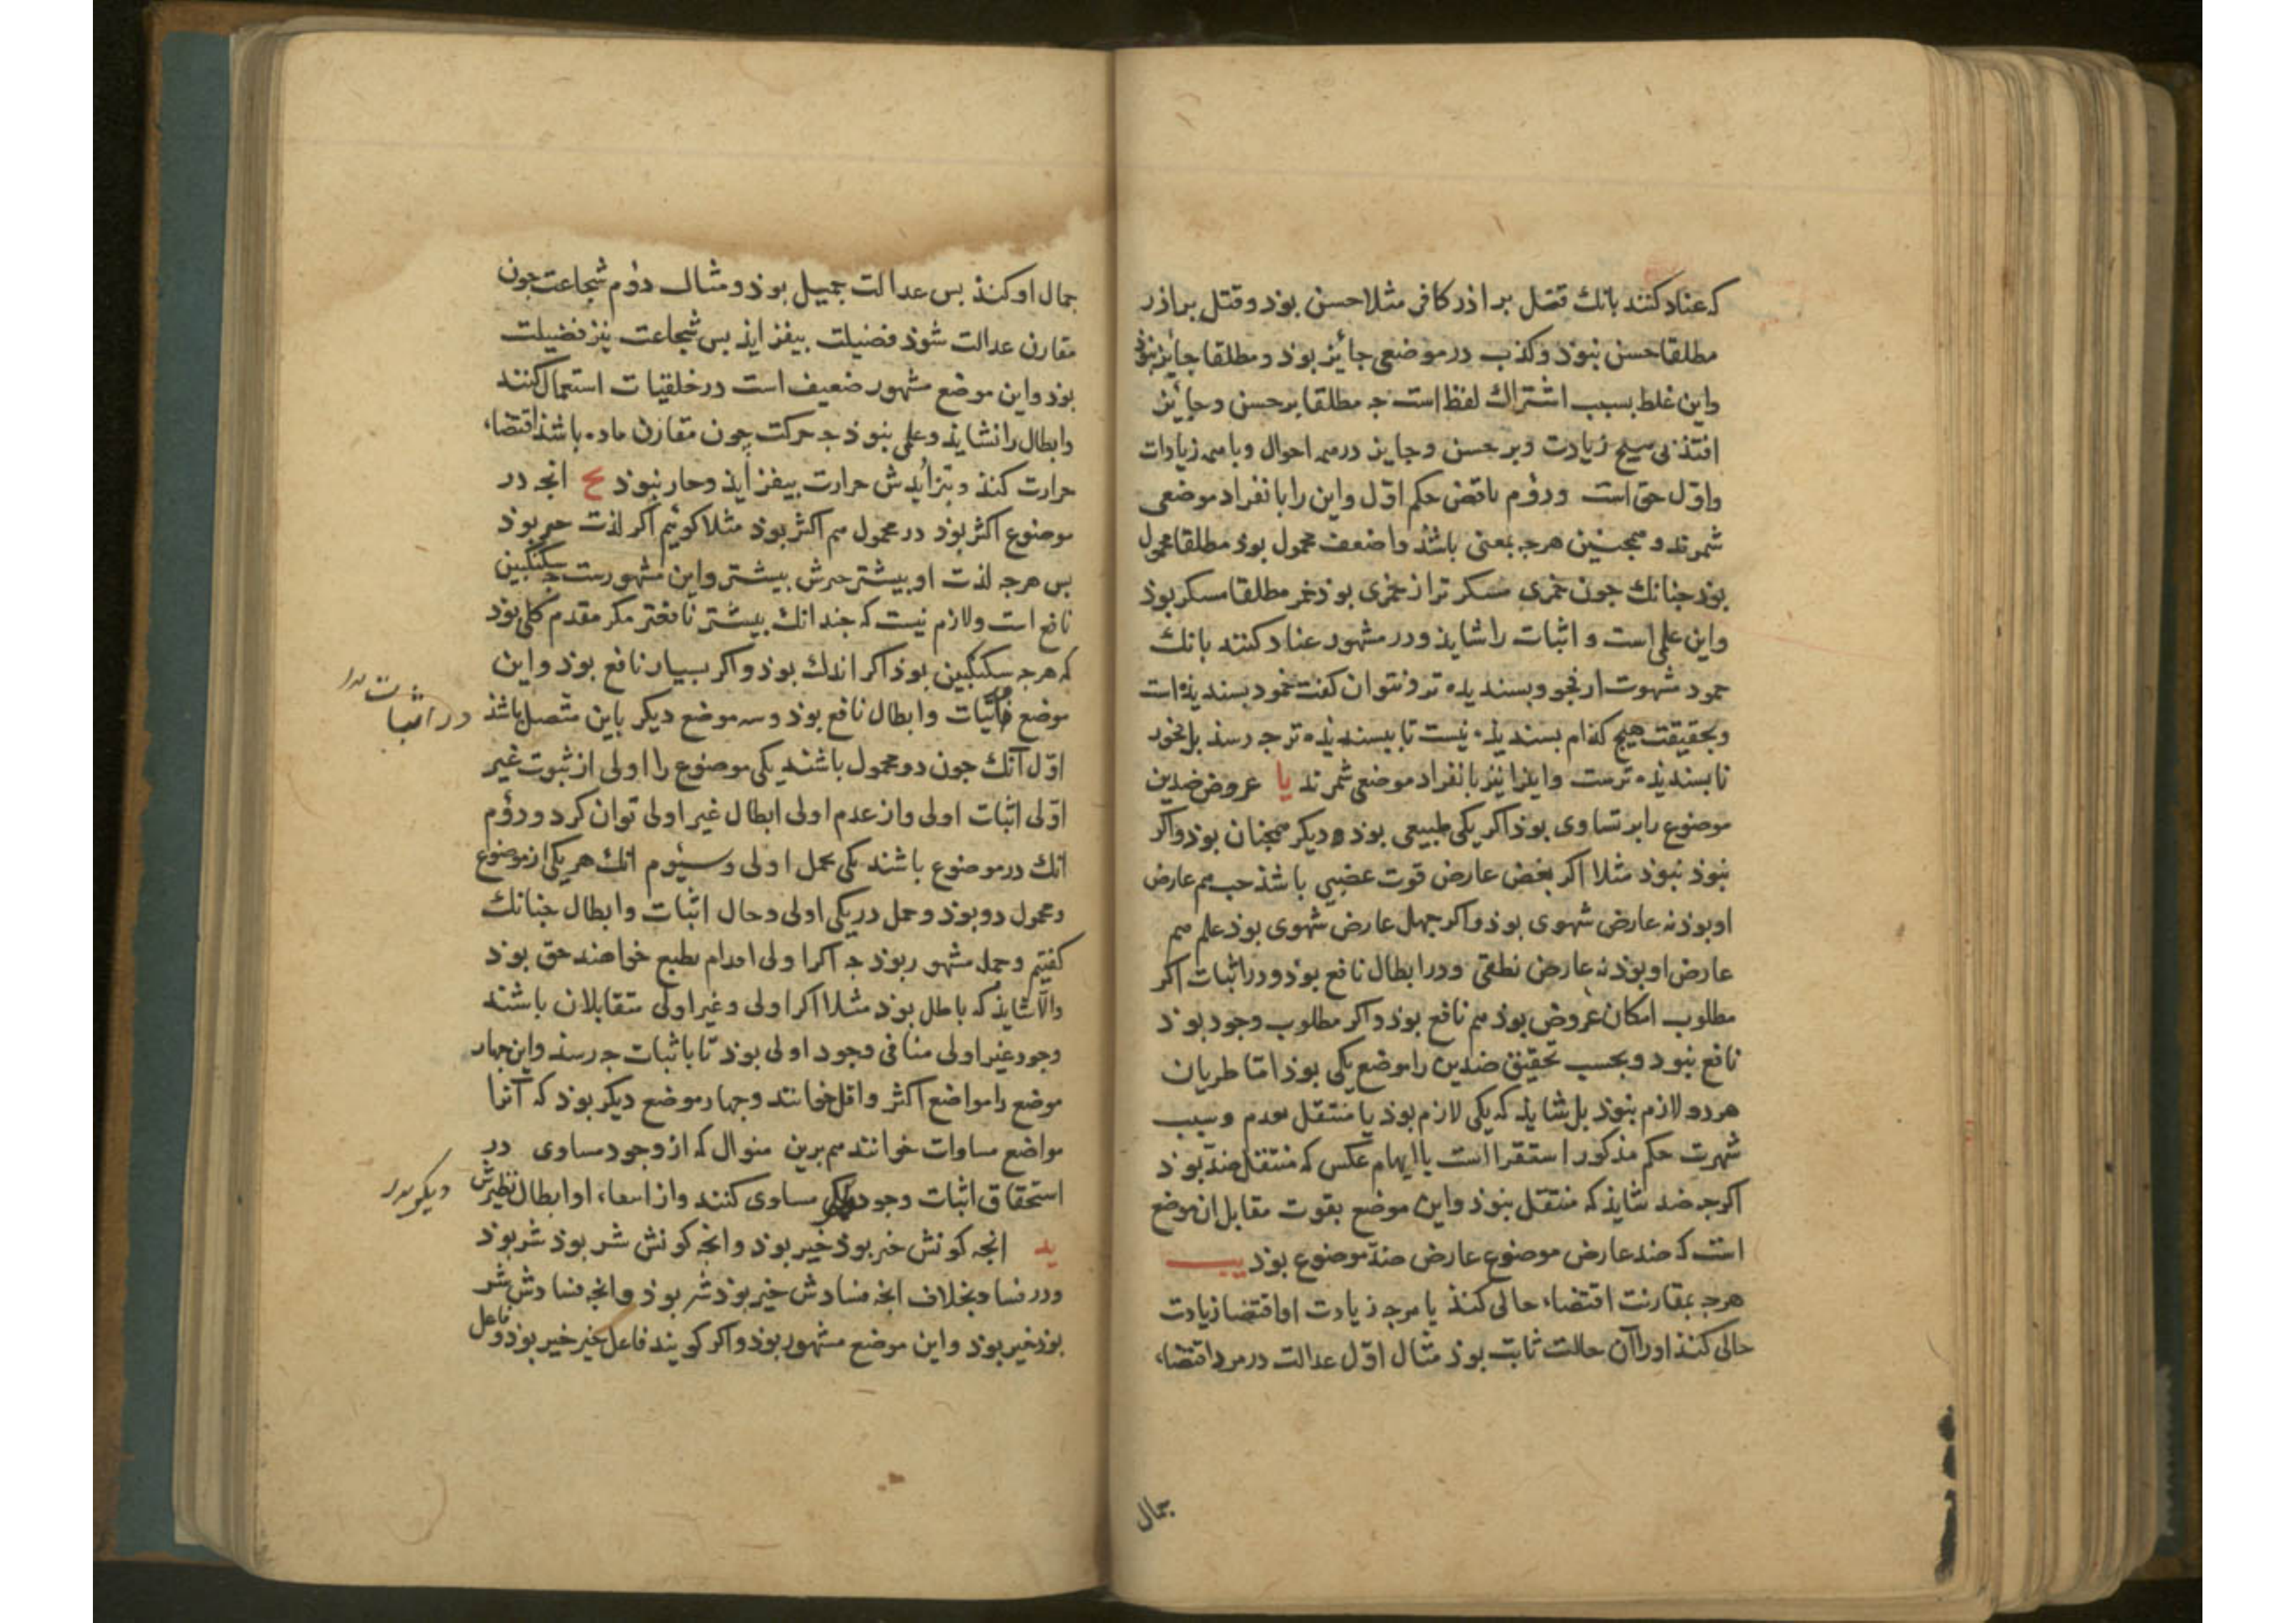 که عناد کنند بانك قتل براذر کافر مثلا حسن بوذ و قتل براذر
مطلقا حسن نبوذ و کذب در موضعی جائز بوذ و مطلقا جائز نبوذ
واین غلط بسبب اشتراك لفظ است جه مطلقا بر حسن و جائز
افتذ بی هیج زیادت و بر حسن و جایز در همه احوال و با همه زیادات
واوّل حق است و دوم ناقض حکم اوّل واین را بانفراد موضعی
شمرند و همجنین هرجه بمعنی باشذ واضعف محمول بوذ مطلقا محمول
بوذ جنانك جون خمری مسکر تر از خمری بوذ خمر مطلقا مسکر بوذ
واین علمی است و اثبات را شایذ و در مشهور عناد کنند بانك
خمود شهوت از فجور بسندیده تر و نتوان کفت خمود بسندیذه است
وبحقیقت هیج کذام بسندیذه نیست تا ببسندیذه تر جه رسذ بل فجور
نابسندیذه ترست واینرا نیز بانفراد موضعی شمرند یا عروض ضدین
موضوع را بر تساوی بوذ اکر یکی طبیعی بوذ دیکر همجنان بوذ واکر
نبوذ نبوذ مثلا اکر بغض عارض قوت غضبی باشذ حب هم عارض
او بوذ نه عارض شهوی بوذ واکر جهل عارض شهوی بوذ علم هم
عارض او بوذ نه عارض نطقی و در ابطال نافع بوذ و در اثبات اکر
مطلوب امکان عروض بوذ هم نافع بوذ واکر مطلوب وجود بوذ
نافع نبوذ و بحسب تحقیق ضدین را موضع یکی بوذ امّا طریان
هر دو لازم نبوذ بل شایذ که یکی لازم بوذ یا منتقل بعدم و سبب
شهرت حکم مذکور استقرا است یا ایهام عکس که منتقل ضدّ بوذ
اکرجه ضد شایذ که منتقل نبوذ واین موضع بقوت مقابل ان موضع
است که ضد عارض موضوع عارض ضدّ موضوع بوذ یب
هرجه بمقارنت اقتضاء حالی کنذ یا هرجه زیادت او اقتضا زیادت
حالی کنذ اورا آن حالت ثابت بوذ مثال اوّل عدالت در مرد اقتضاء
جمال
جمال او کنذ بس عدالت جمیل بوذ و مثال دوم شجاعت جون
مقارن عدالت شوذ فضیلت بیفزایذ بس شجاعت نیز فضیلت
بوذ واین موضع مشهور ضعیف است در خلقیات استعمال کنند
وابطال را نشایذ و علمی نبوذ جه حرکت جون مقارن ماده باشذ اقتضاء
حرارت کنذ و بتزایدش حرارت بیفزایذ و حار نبوذ یح انجه در
موضوع اکثر بوذ در محمول هم اکثر بوذ مثلا کوئیم اکر لذت خیر بوذ
بس هرجه لذت او بیشتر خیرش بیشتر واین مشهورست جه سکنکبین
نافع است و لازم نیست که جندانك بیشتر نافعتر مکر مقدم کلی بوذ
که هرجه سکنکبین بوذ اکر اندك بوذ واکر بسیار نافع بوذ واین
موضع وابطال نافع بوذ و سه موضع دیکر باین متصل باشذ
در اثبات
اوّل آنك جون دو محمول باشند یکی موضوع را اولی از ثبوت غیر
اوّلی اثبات اولی و از عدم اولی ابطال غیر اولی توان کرد و دوم
انك دو موضوع باشند یکی بحمل اولی و سیوم انك هر یکی از موضوع
و محمول دو بوذ و حمل در یکی اولی و حال اثبات و ابطال جنانك
کفتیم و جمله مشهور بوذ جه اکر اولی بطبع خواهند حق بوذ
والّا شایذ که باطل بوذ مثلا اکر اولی و غیر اولی متقابلان باشند
وجود غیر اولی منافی وجود اولی بوذ تا باثبات جه رسذ واین جهار
موضع را مواضع اکثر و اقل خوانند و جهار موضع دیکر بوذ که آنرا
مواضع مساوات خوانند هم برین منوال که از وجود مساوی در
استحقاق اثبات وجود مساوی کنند و از انتفاء او ابطال نظیرش
ید انجه کونش خیر بوذ خیر بوذ وانجه کونش شر بوذ شر بوذ
و در فساد بخلاف انجه فسادش خیر بوذ شر بوذ وانجه فسادش شر
بوذ خیر بوذ واین موضع مشهور بوذ واکر کویند فاعل خیر خیر بوذ و فاعل